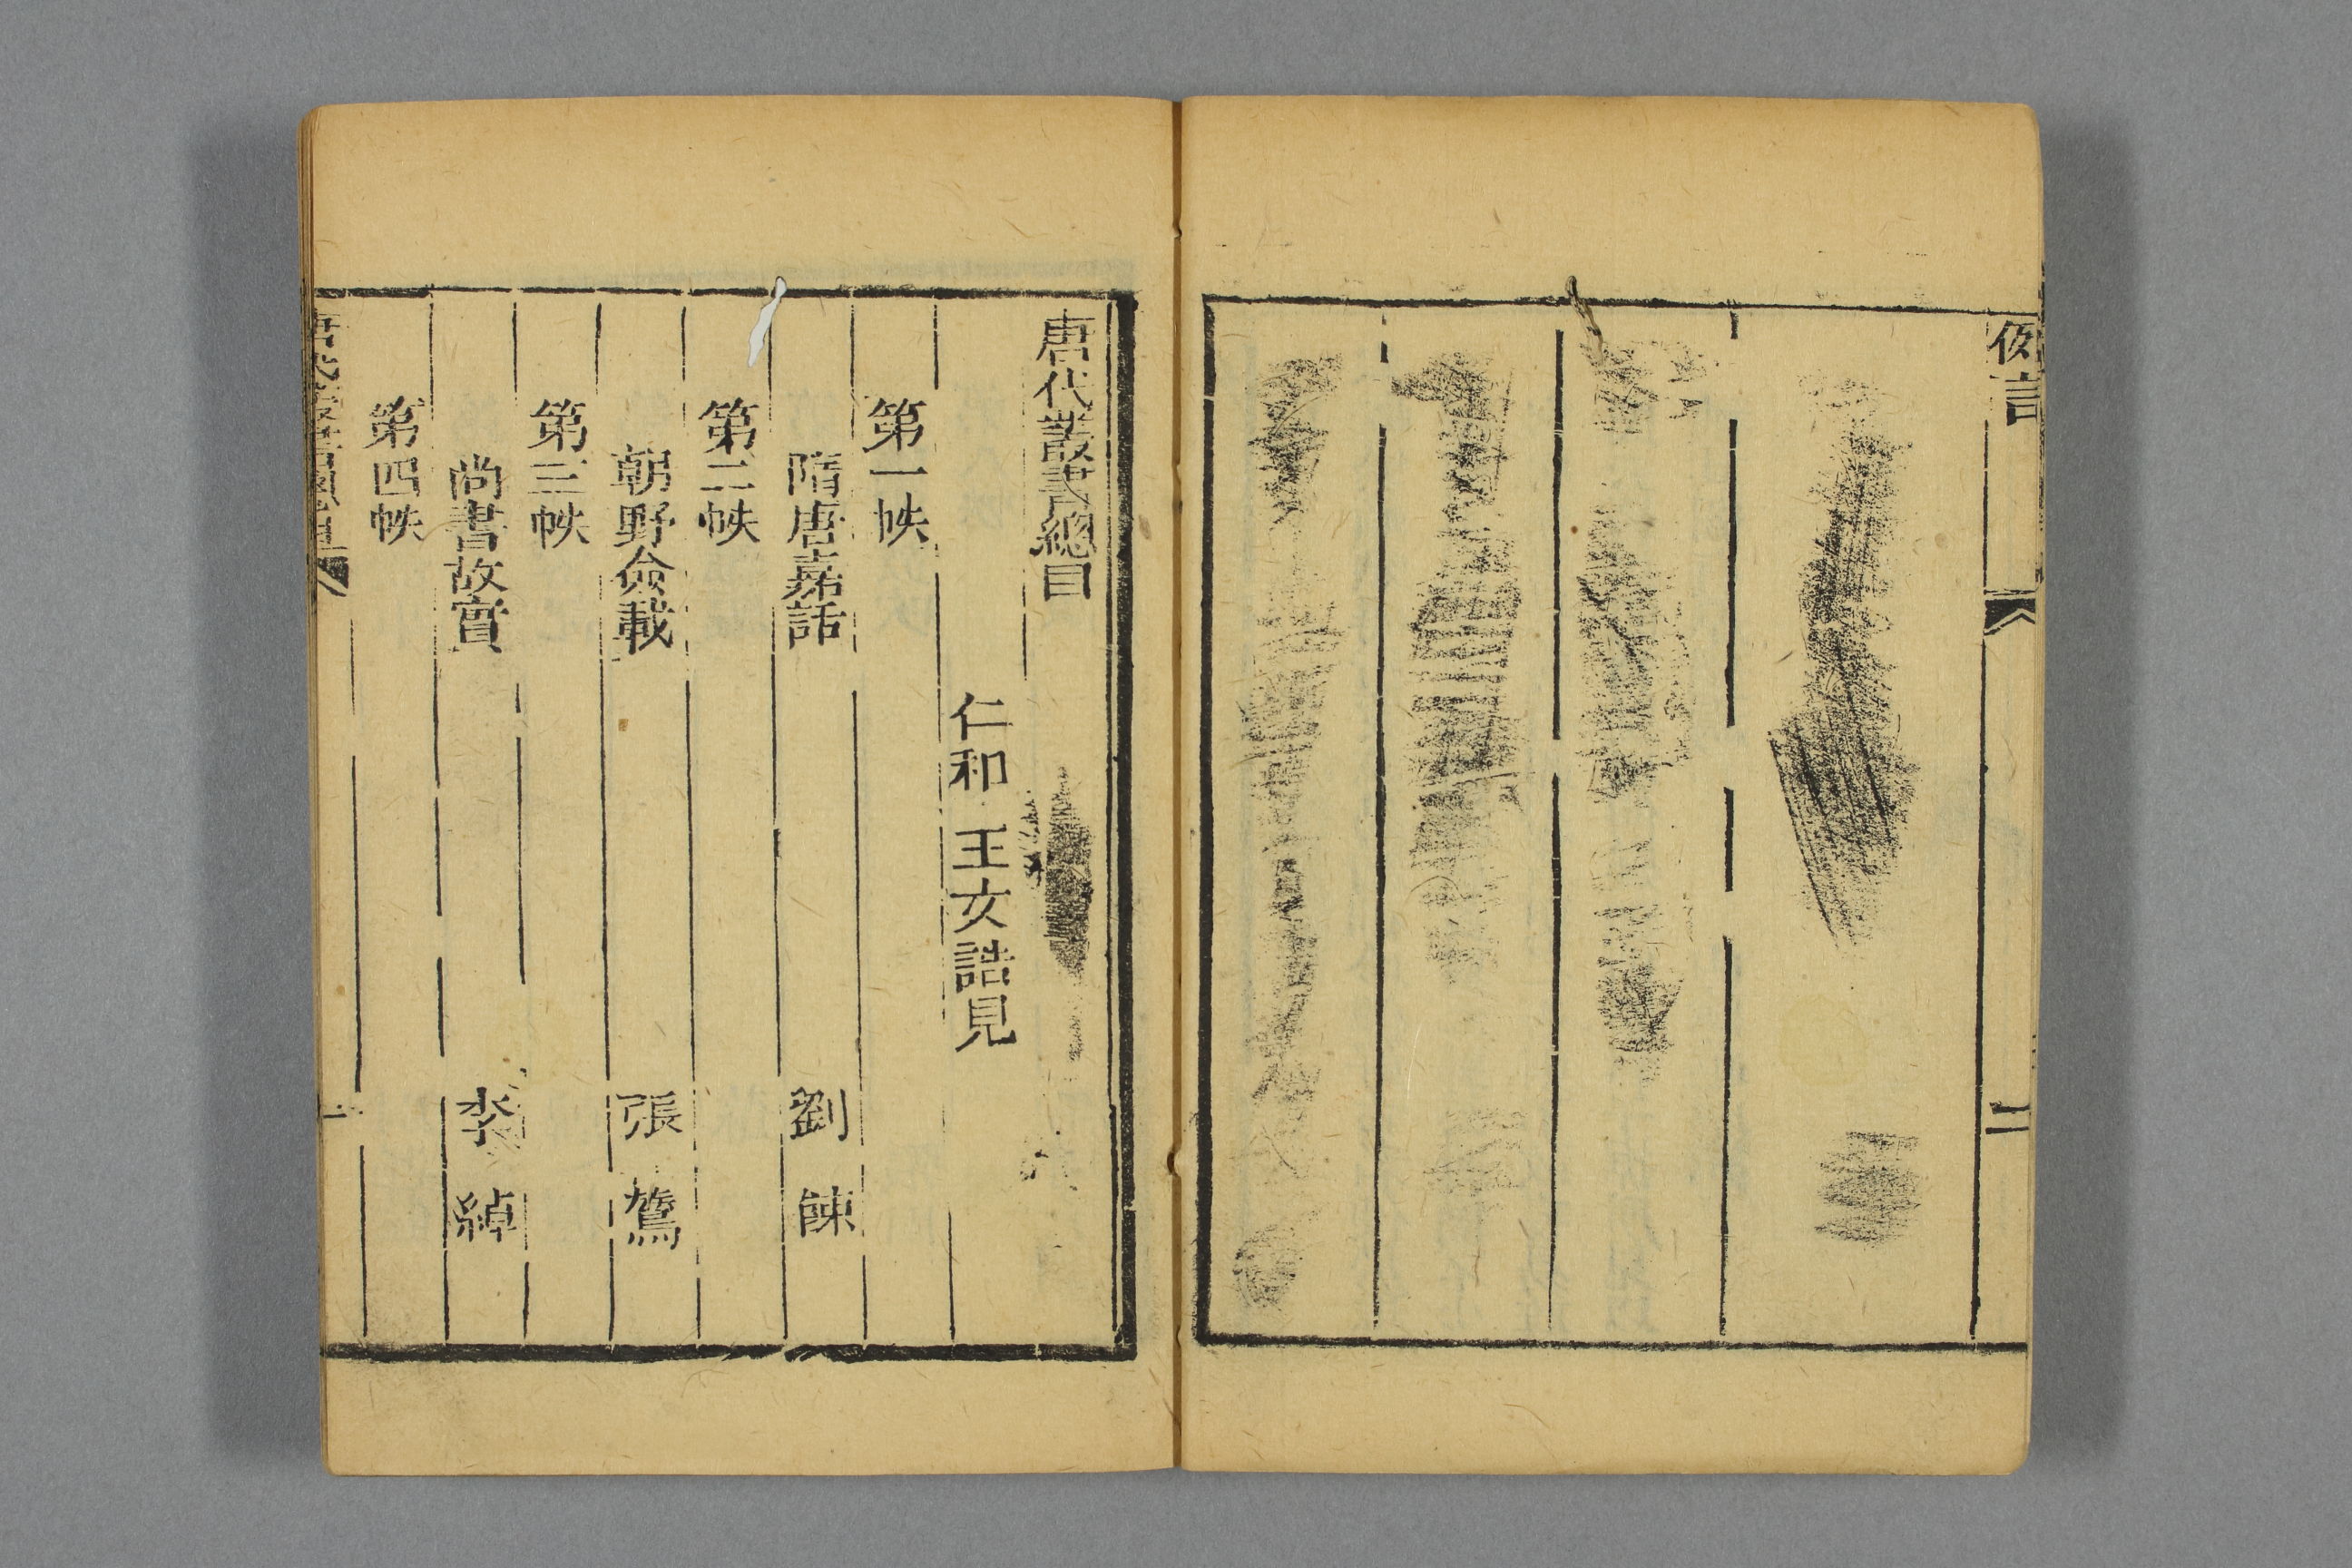 例言
二
唐代叢書總目
仁和 王文誥見
第一帙
隋唐嘉話 劉餗
第二帙
朝野僉載 張鷟
第三帙
尚書故實 李綽
第四帙
唐代叢書總目 一